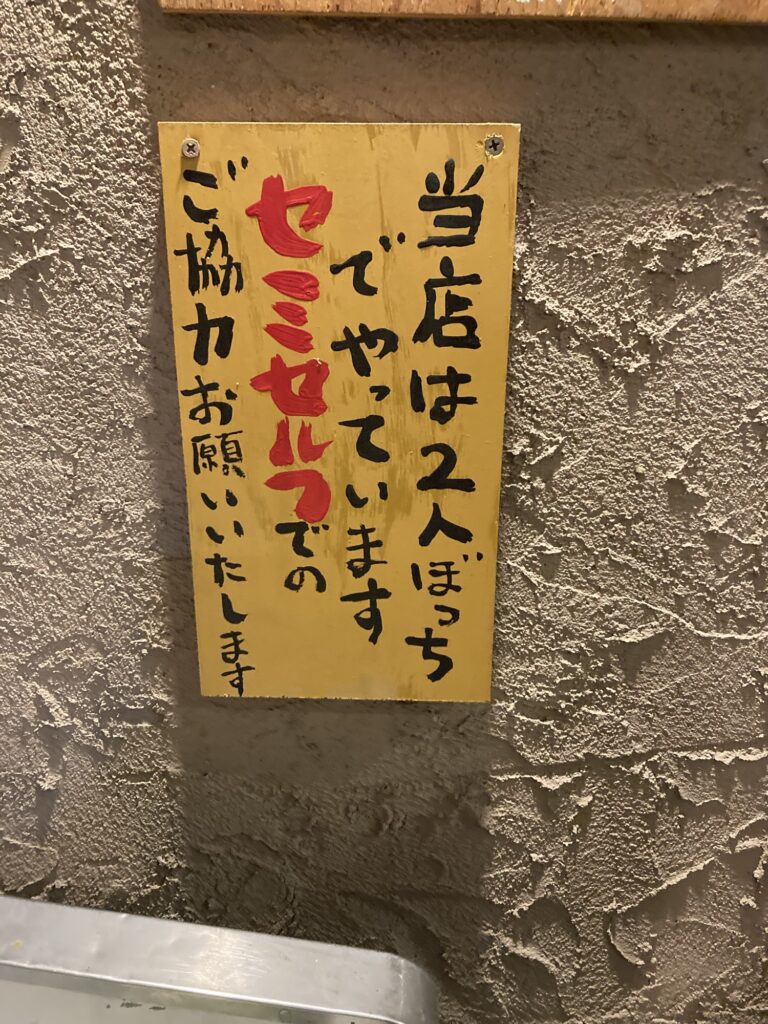 当店は2人ぼっち
でやっています
セミセルフでの
ご協力お願いいたします